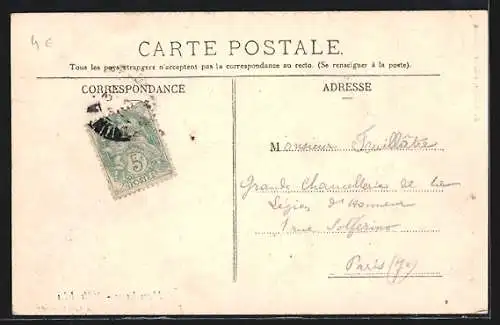 4 €
CARTE POSTALE.
Tous les pays étrangers n'acceptent pas la correspondance au recto. (Se renseigner à la poste).
CORRESPONDANCE
ADRESSE
5
POSTES
Monsieur Feuillâtre
Grande Chancellerie de la
Légion d'Honneur
1 rue Solférino
Paris (7e)